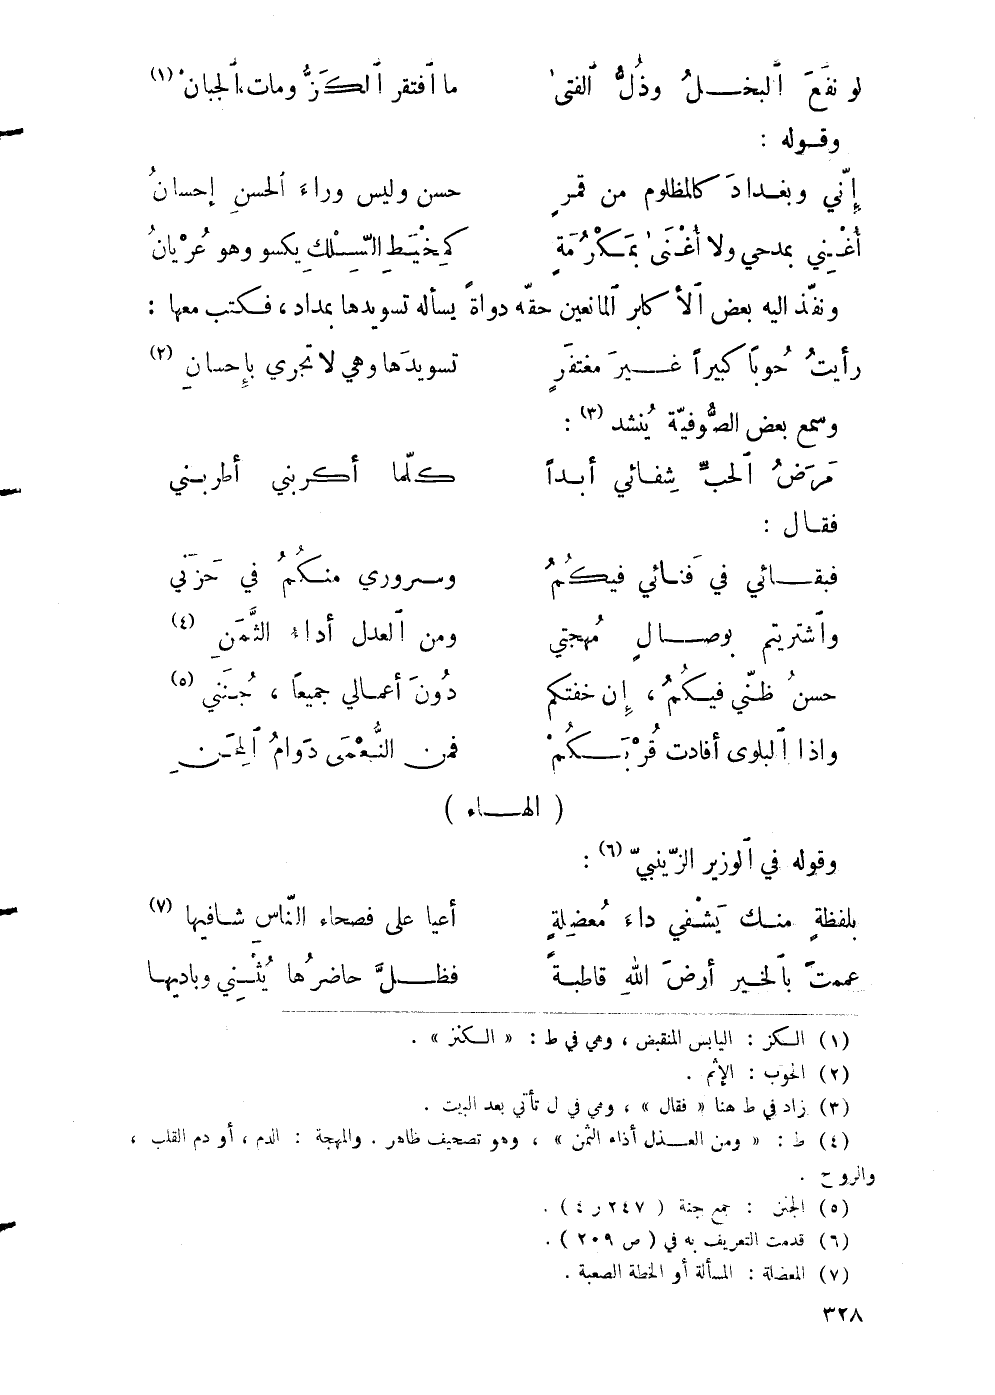 لو نفَعَ ٱلبخلُ وذُلُّ ٱلفتىٰ ما ٱفتقر ٱلكَزُّ ومات ٱلجبانْ (١)
وقوله :
إِنّي وبغدادَ كالمظلوم من قمرٍ حسن وليس وراءَ ٱلحسنِ إحسانُ
أُغْنِي بمدحي ولا أُغْنَىٰ بمَكْرُمَةٍ كمِخْيَطِ السِّلكِ يكسو وهو عُرْيانُ
ونفّذ اليه بعض ٱلأكابر ٱلمانعين حقّه دواةً يسأله تسويدها بمداد ، فكتب معها :
رأيتُ حُوباً كبيراً غيرَ مغتفَرٍ تسويدَها وهي لا تجري بإِحسانِ (٢)
وسمع بعض الصُّوفيّة يُنشد (٣) :
مَرَضُ ٱلحبِّ شِفائي أبداً كلّما أكربني أطربني
فقال :
فبقائي في فَنائي فيكُمُ وسروري منكُمُ في حَزَني
وٱشتريتم بوصالٍ مُهجتي ومن ٱلعدل أداءُ الثَّمَنِ (٤)
حسنُ ظنّي فيكُمُ ، إِن خفتكم دُونَ أعمالي جميعاً ، جُنَني (٥)
واذا ٱلبلوى أفادت قُرْبَكُمْ فمن النُّعْمَى دَوامُ ٱلمِحَنِ
( الهاء )
وقوله في ٱلوزير الزّينبيّ (٦) :
بلفظةٍ منك يَشْفي داءَ مُعضِلةٍ أعيا على فصحاء النّاسِ شافيها (٧)
عممتَ بٱلخير أرضَ اللهِ قاطبةً فظلَّ حاضرُها يُثْنِي وباديها
(١) الكز : اليابس المنقبض ، وهي في ط : « الكنز » .
(٢) الحوب : الإثم .
(٣) زاد في ط هنا « فقال » ، وهي في ل تأتي بعد البيت .
(٤) ط : « ومن العذل أذاء الثمن » ، وهو تصحيف ظاهر . والمهجة : الدم ، أو دم القلب ،
والروح .
(٥) الجنن : جمع جنة ( ٢٤٧ ر ٤ ) .
(٦) قدمت التعريف به في ( ص ٢٠٩ ) .
(٧) المعضلة : المسألة أو الخطة الصعبة .
٣٢٨